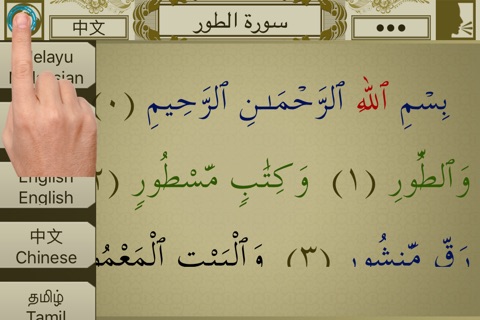 中文
سورة الطور
•••
Melayu
English
English
中文
Chinese
தமிழ்
Tamil
بِسْمِ ٱللَّهِ ٱلرَّحْمَـٰنِ ٱلرَّحِيمِ (٠)
وَٱلطُّورِ (١) وَكِتَـٰبٍ مَّسْطُورٍ (٢
رَقٍّ مَّنشُورٍ (٣) وَٱلْبَيْتِ ٱلْمَعْمُو